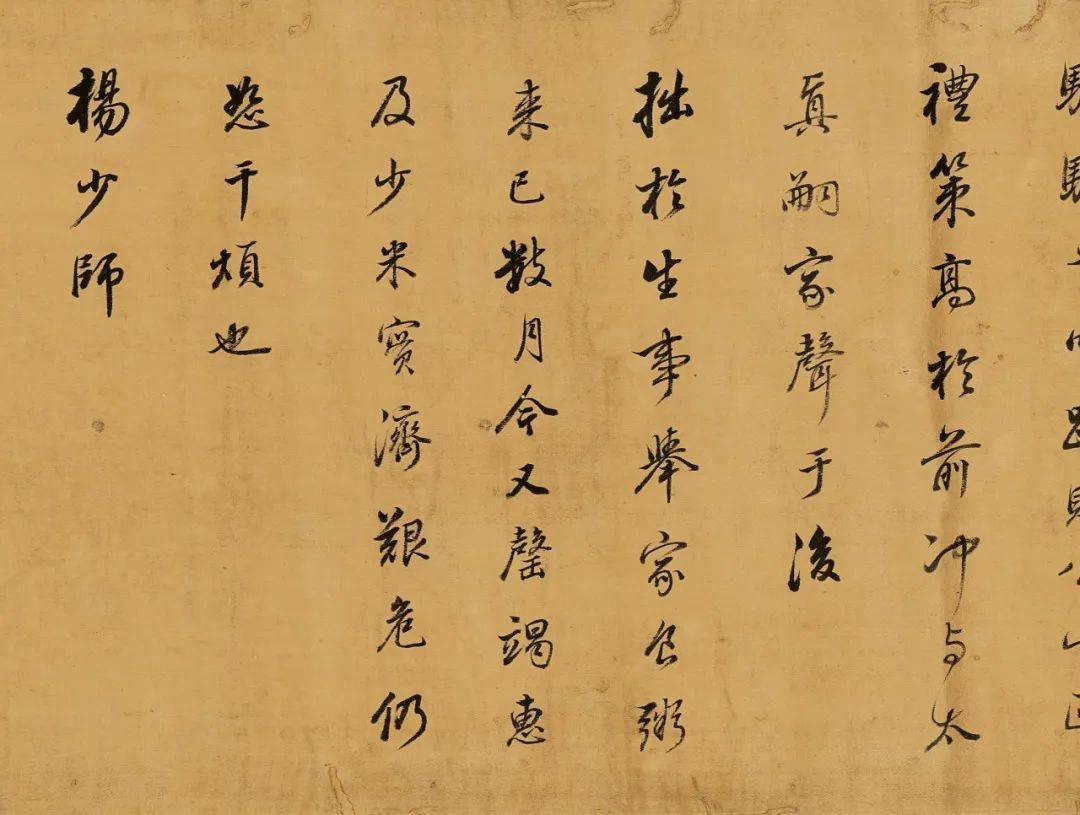 禮策高於前冲与太
真嗣家聲于後
拙於生事舉家食粥
来已數月今又罄竭惠
及少米實濟艱危仍
恕干煩也
楊少師